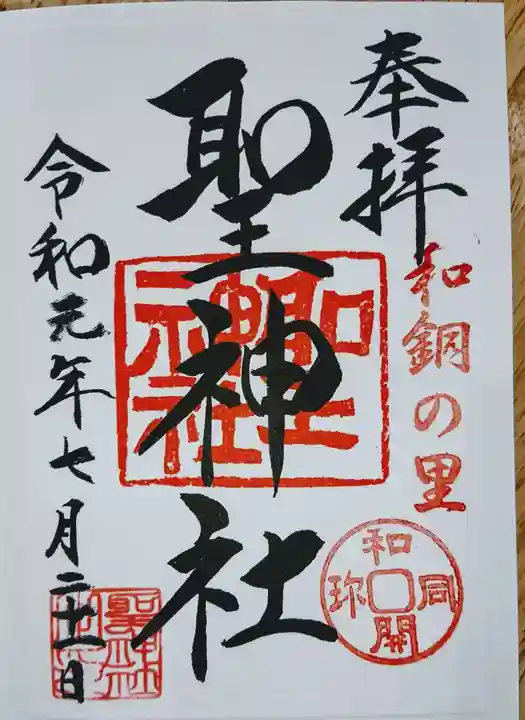 奉拝
和銅の里
和同開珎
聖神社
聖神社
令和元年七月二十一日